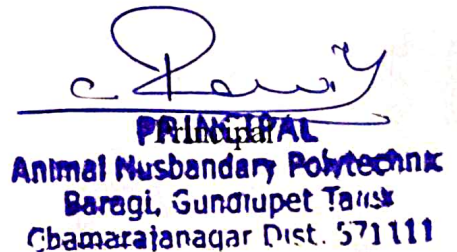 PRINCIPAL
Principal
Animal Husbandary Polytechnic
Baragi, Gundlupet Taluk
Chamarajanagar Dist. 571111